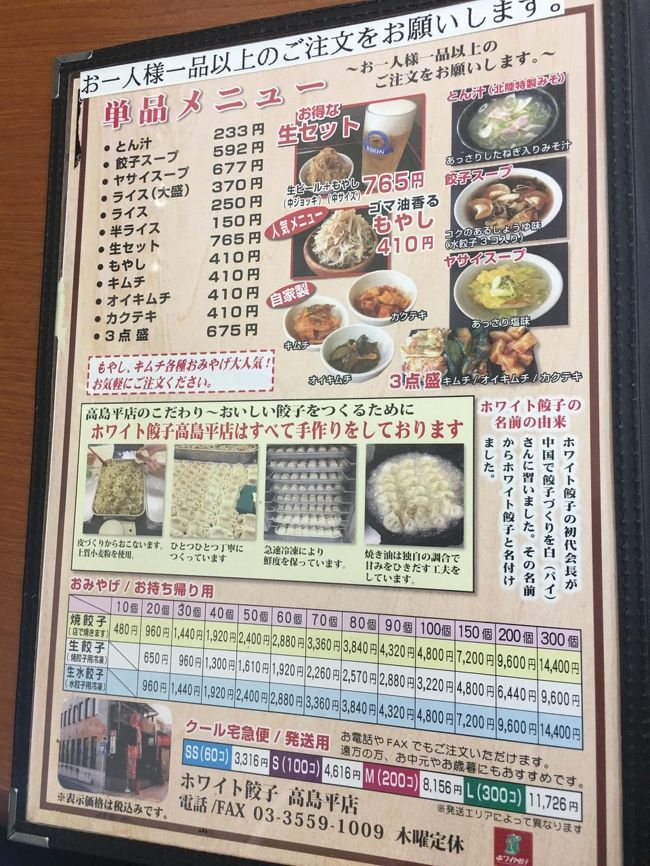 お一人様一品以上のご注文をお願いします。
～お一人様一品以上の
ご注文をお願いします。～
単品メニュー
• とん汁 233円
• 餃子スープ 592円
• ヤサイスープ 677円
• ライス(大盛) 370円
• ライス 250円
• 半ライス 150円
• 生セット 765円
• もやし 410円
• キムチ 410円
• オイキムチ 410円
• カクテキ 410円
• 3点盛 675円
もやし、キムチ各種おみやげ大人気！
お気軽にご注文ください。
お得な
生セット
KIRIN
生ビール+もやし
(中ジョッキ) (中サイズ)
765円
人気メニュー
ゴマ油香る
もやし
410円
自家製
キムチ
カクテキ
オイキムチ
3点盛 キムチ/オイキムチ/カクテキ
とん汁(北陸特製みそ)
あっさりしたねぎ入りみそ汁
餃子スープ
コクのあるしょうゆ味
(水餃子3コ入り)
ヤサイスープ
あっさり塩味
高島平店のこだわり～おいしい餃子をつくるために
ホワイト餃子高島平店はすべて手作りをしております
皮づくりからおこないます。
上質小麦粉を使用。
ひとつひとつ丁寧に
つくっています
急速冷凍により
鮮度を保っています。
焼き油は独自の調合で
甘みをひきだす工夫を
しています。
ホワイト餃子の
名前の由来
ホワイト餃子の初代会長が
中国で餃子づくりを白(パイ)
さんに習いました。その名前
からホワイト餃子と名付け
ました。
おみやげ/お持ち帰り用
10個 20個 30個 40個 50個 60個 70個 80個 90個 100個 150個 200個 300個
焼餃子 480円 960円 1,440円 1,920円 2,400円 2,880円 3,360円 3,840円 4,320円 4,800円 7,200円 9,600円 14,400円
(店で焼きます)
生餃子 650円 960円 1,300円 1,610円 1,920円 2,260円 2,570円 2,880円 3,220円 4,800円 6,440円 9,600円
(焼餃子用冷凍)
生水餃子 960円 1,440円 1,920円 2,400円 2,880円 3,360円 3,840円 4,320円 4,800円 7,200円 9,600円 14,400円
(水餃子用冷凍)
クール宅急便/発送用
お電話やFAXでもご注文いただけます。
遠方の方、お中元やお歳暮にもおすすめです。
SS(60コ) 3,316円 S(100コ) 4,616円 M(200コ) 8,156円 L(300コ) 11,726円
※発送エリアによって異なります
ホワイト餃子 高島平店
電話/FAX 03-3559-1009 木曜定休
※表示価格は税込みです。
ホワイト餃子